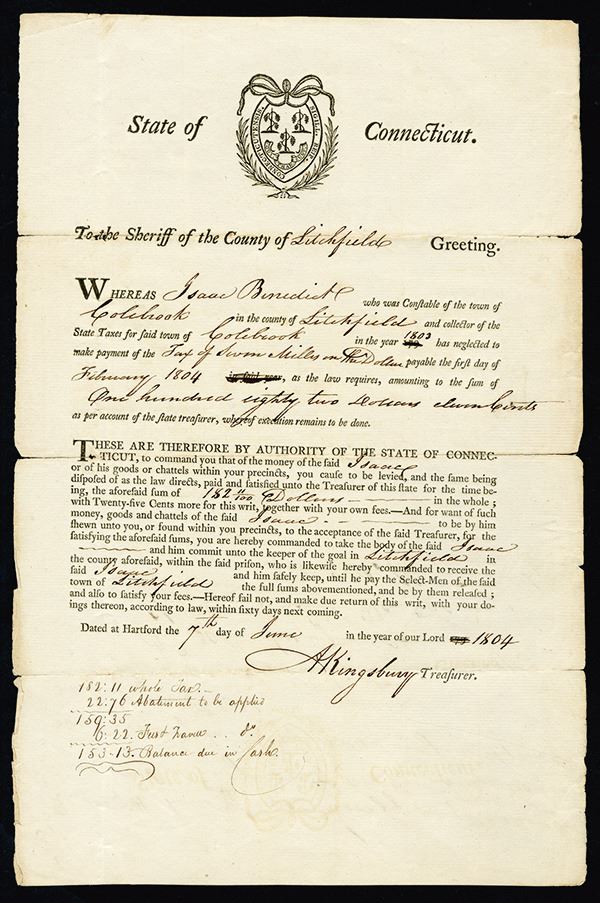 State of Connecticut.
SIGILL. REIP. CONNECTICUTENSIS
To the Sheriff of the County of Litchfield Greeting.
WHEREAS Isaac Benedict who was Constable of the town of
Colebrook in the county of Litchfield and collector of the
State Taxes for said town of Colebrook in the year 1803 has neglected to
make payment of the Tax of Seven Milles on the Dollar payable the first day of
February 1804 in said year, as the law requires, amounting to the sum of
One hundred eighty two Dollars eleven Cents
as per account of the state treasurer, whereof execution remains to be done.
THESE ARE THEREFORE BY AUTHORITY OF THE STATE OF CONNEC-
TICUT, to command you that of the money of the said Isaac
or of his goods or chattels within your precincts, you cause to be levied, and the same being
disposed of as the law directs, paid and satisfied unto the Treasurer of this state for the time be-
ing, the aforesaid sum of 182 11/100 Dollars in the whole;
with Twenty-five Cents more for this writ, together with your own fees.—And for want of such
money, goods and chattels of the said Isaac to be by him
shewn unto you, or found within your precincts, to the acceptance of the said Treasurer, for the
satisfying the aforesaid sums, you are hereby commanded to take the body of the said Isaac
and him commit unto the keeper of the goal in Litchfield in
the county aforesaid, within the said prison, who is likewise hereby commanded to receive the
said Isaac and him safely keep, until he pay the Select-Men of the said
town of Litchfield the full sums abovementioned, and be by them released;
and also to satisfy your fees.—Hereof fail not, and make due return of this writ, with your do-
ings thereon, according to law, within sixty days next coming.
Dated at Hartford the 7th day of June in the year of our Lord 1804
AKingsbury Treasurer.
182:11 whole Tax.—
22:76 Abatement to be applied
159:35
6:22. Fees & Travel .. Do.
153-13. Balance due in Cash.